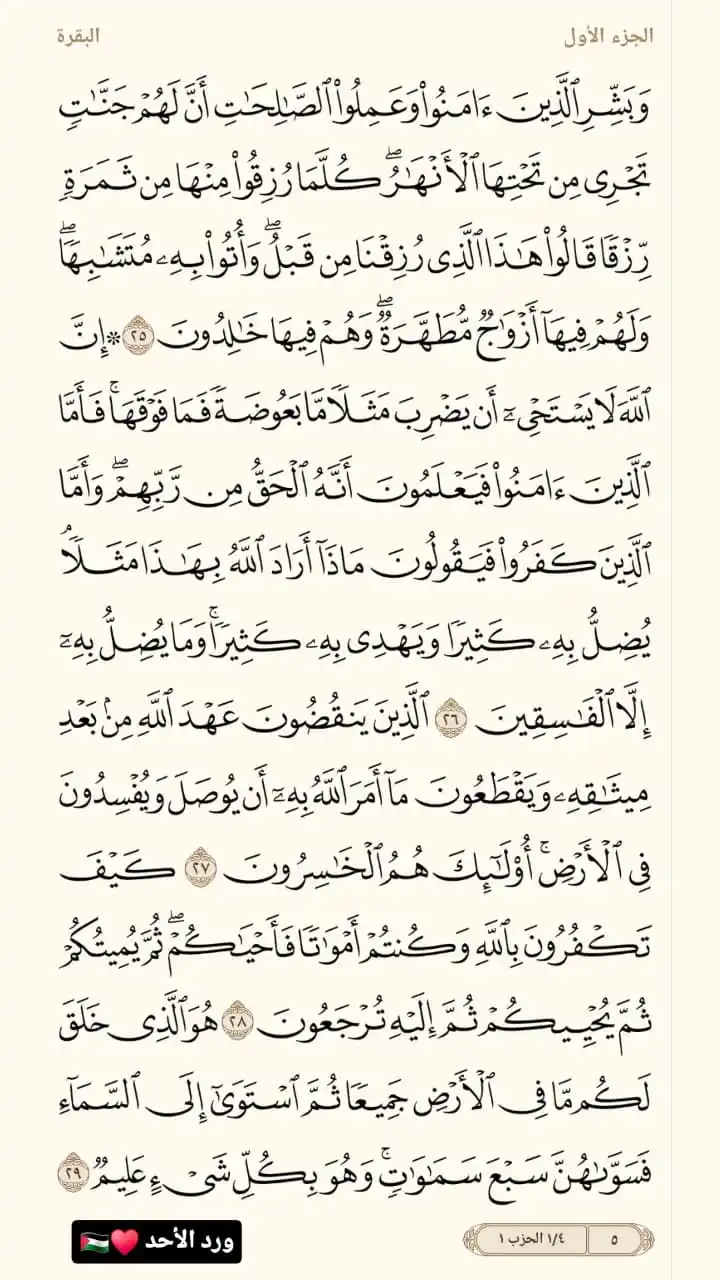 الجزء الأول البقرة
وَبَشِّرِ ٱلَّذِينَ ءَامَنُوا۟ وَعَمِلُوا۟ ٱلصَّٰلِحَٰتِ أَنَّ لَهُمْ جَنَّٰتٍ
تَجْرِى مِن تَحْتِهَا ٱلْأَنْهَٰرُ ۖ كُلَّمَا رُزِقُوا۟ مِنْهَا مِن ثَمَرَةٍ
رِّزْقًا قَالُوا۟ هَٰذَا ٱلَّذِى رُزِقْنَا مِن قَبْلُ ۖ وَأُتُوا۟ بِهِۦ مُتَشَٰبِهًا ۖ
وَلَهُمْ فِيهَآ أَزْوَٰجٌ مُّطَهَّرَةٌ ۖ وَهُمْ فِيهَا خَٰلِدُونَ ٢٥ ۞ إِنَّ
ٱللَّهَ لَا يَسْتَحْىِۦٓ أَن يَضْرِبَ مَثَلًا مَّا بَعُوضَةً فَمَا فَوْقَهَا ۚ فَأَمَّا
ٱلَّذِينَ ءَامَنُوا۟ فَيَعْلَمُونَ أَنَّهُ ٱلْحَقُّ مِن رَّبِّهِمْ ۖ وَأَمَّا
ٱلَّذِينَ كَفَرُوا۟ فَيَقُولُونَ مَاذَآ أَرَادَ ٱللَّهُ بِهَٰذَا مَثَلًا ۘ
يُضِلُّ بِهِۦ كَثِيرًا وَيَهْدِى بِهِۦ كَثِيرًا ۚ وَمَا يُضِلُّ بِهِۦٓ
إِلَّا ٱلْفَٰسِقِينَ ٢٦ ٱلَّذِينَ يَنقُضُونَ عَهْدَ ٱللَّهِ مِنۢ بَعْدِ
مِيثَٰقِهِۦ وَيَقْطَعُونَ مَآ أَمَرَ ٱللَّهُ بِهِۦٓ أَن يُوصَلَ وَيُفْسِدُونَ
فِى ٱلْأَرْضِ ۚ أُو۟لَٰٓئِكَ هُمُ ٱلْخَٰسِرُونَ ٢٧ كَيْفَ
تَكْفُرُونَ بِٱللَّهِ وَكُنتُمْ أَمْوَٰتًا فَأَحْيَٰكُمْ ۖ ثُمَّ يُمِيتُكُمْ
ثُمَّ يُحْيِيكُمْ ثُمَّ إِلَيْهِ تُرْجَعُونَ ٢٨ هُوَ ٱلَّذِى خَلَقَ
لَكُم مَّا فِى ٱلْأَرْضِ جَمِيعًا ثُمَّ ٱسْتَوَىٰٓ إِلَى ٱلسَّمَآءِ
فَسَوَّىٰهُنَّ سَبْعَ سَمَٰوَٰتٍ ۚ وَهُوَ بِكُلِّ شَىْءٍ عَلِيمٌ ٢٩
٥ ١/٤ الحزب ١
ورد الأحد ♥️🇵🇸